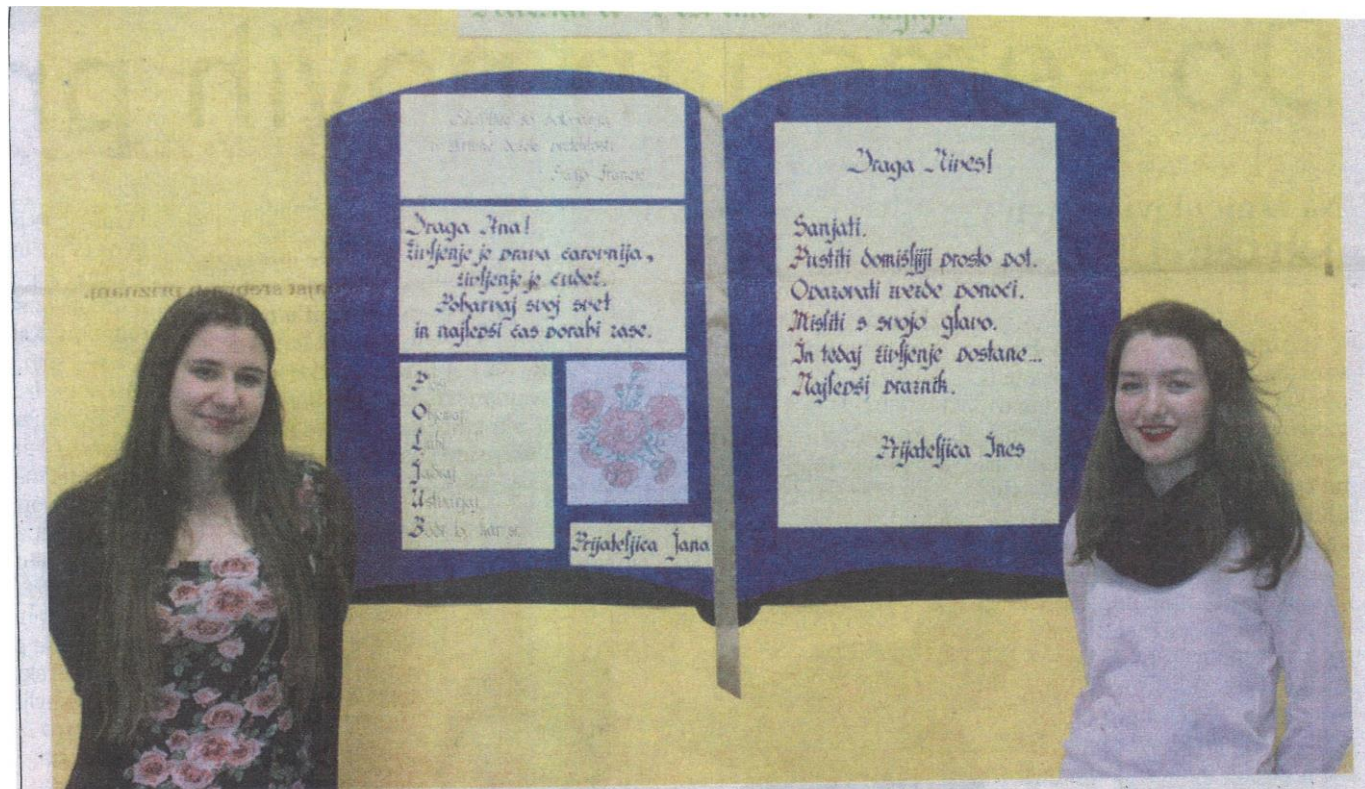 Draga Ana!
Življenje je prava čarovnija,
življenje je čudež.
Pobarvaj svoj svet
in najlepši čas porabi zase.
Objemaj
Ljubi
Jadraj
Ustvarjaj
Bodi to, kar si.
Prijateljica Jana
Draga Nives!
Sanjati.
Pustiti domišljiji prosto pot.
Opazovati zvezde ponoči.
Misliti s svojo glavo.
In tedaj življenje postane...
Najlepši praznik.
Prijateljica Ines